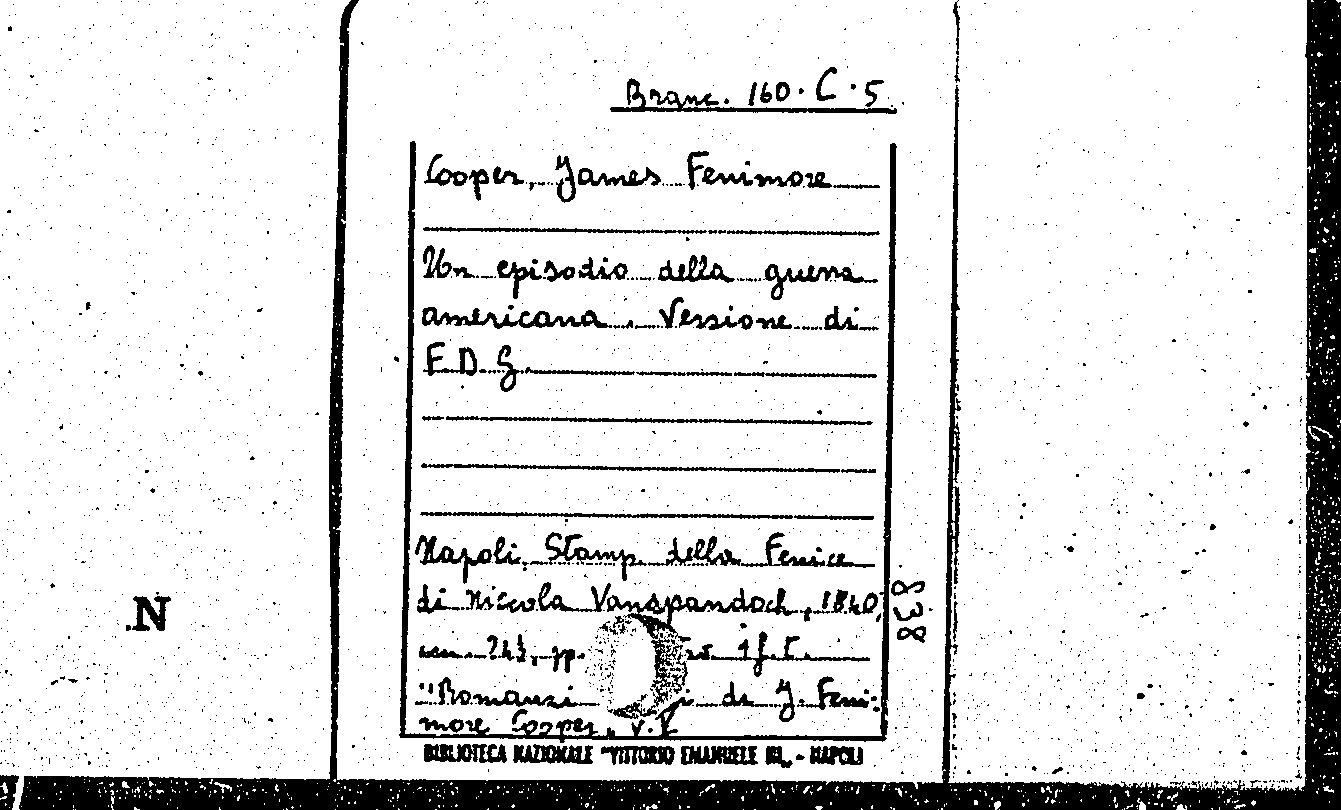 Branc. 160. C. 5
Cooper, James Fenimore
Un episodio della guerra
americana. Versione di
F.D.G.
Napoli, Stamp. della Fenice
di Niccola Vanspandoch, 1840,
1 f.t.
"Romanzi di J. Feni-
more Cooper" v. V
BIBLIOTECA NAZIONALE "VITTORIO EMANUELE III" - NAPOLI
838
N